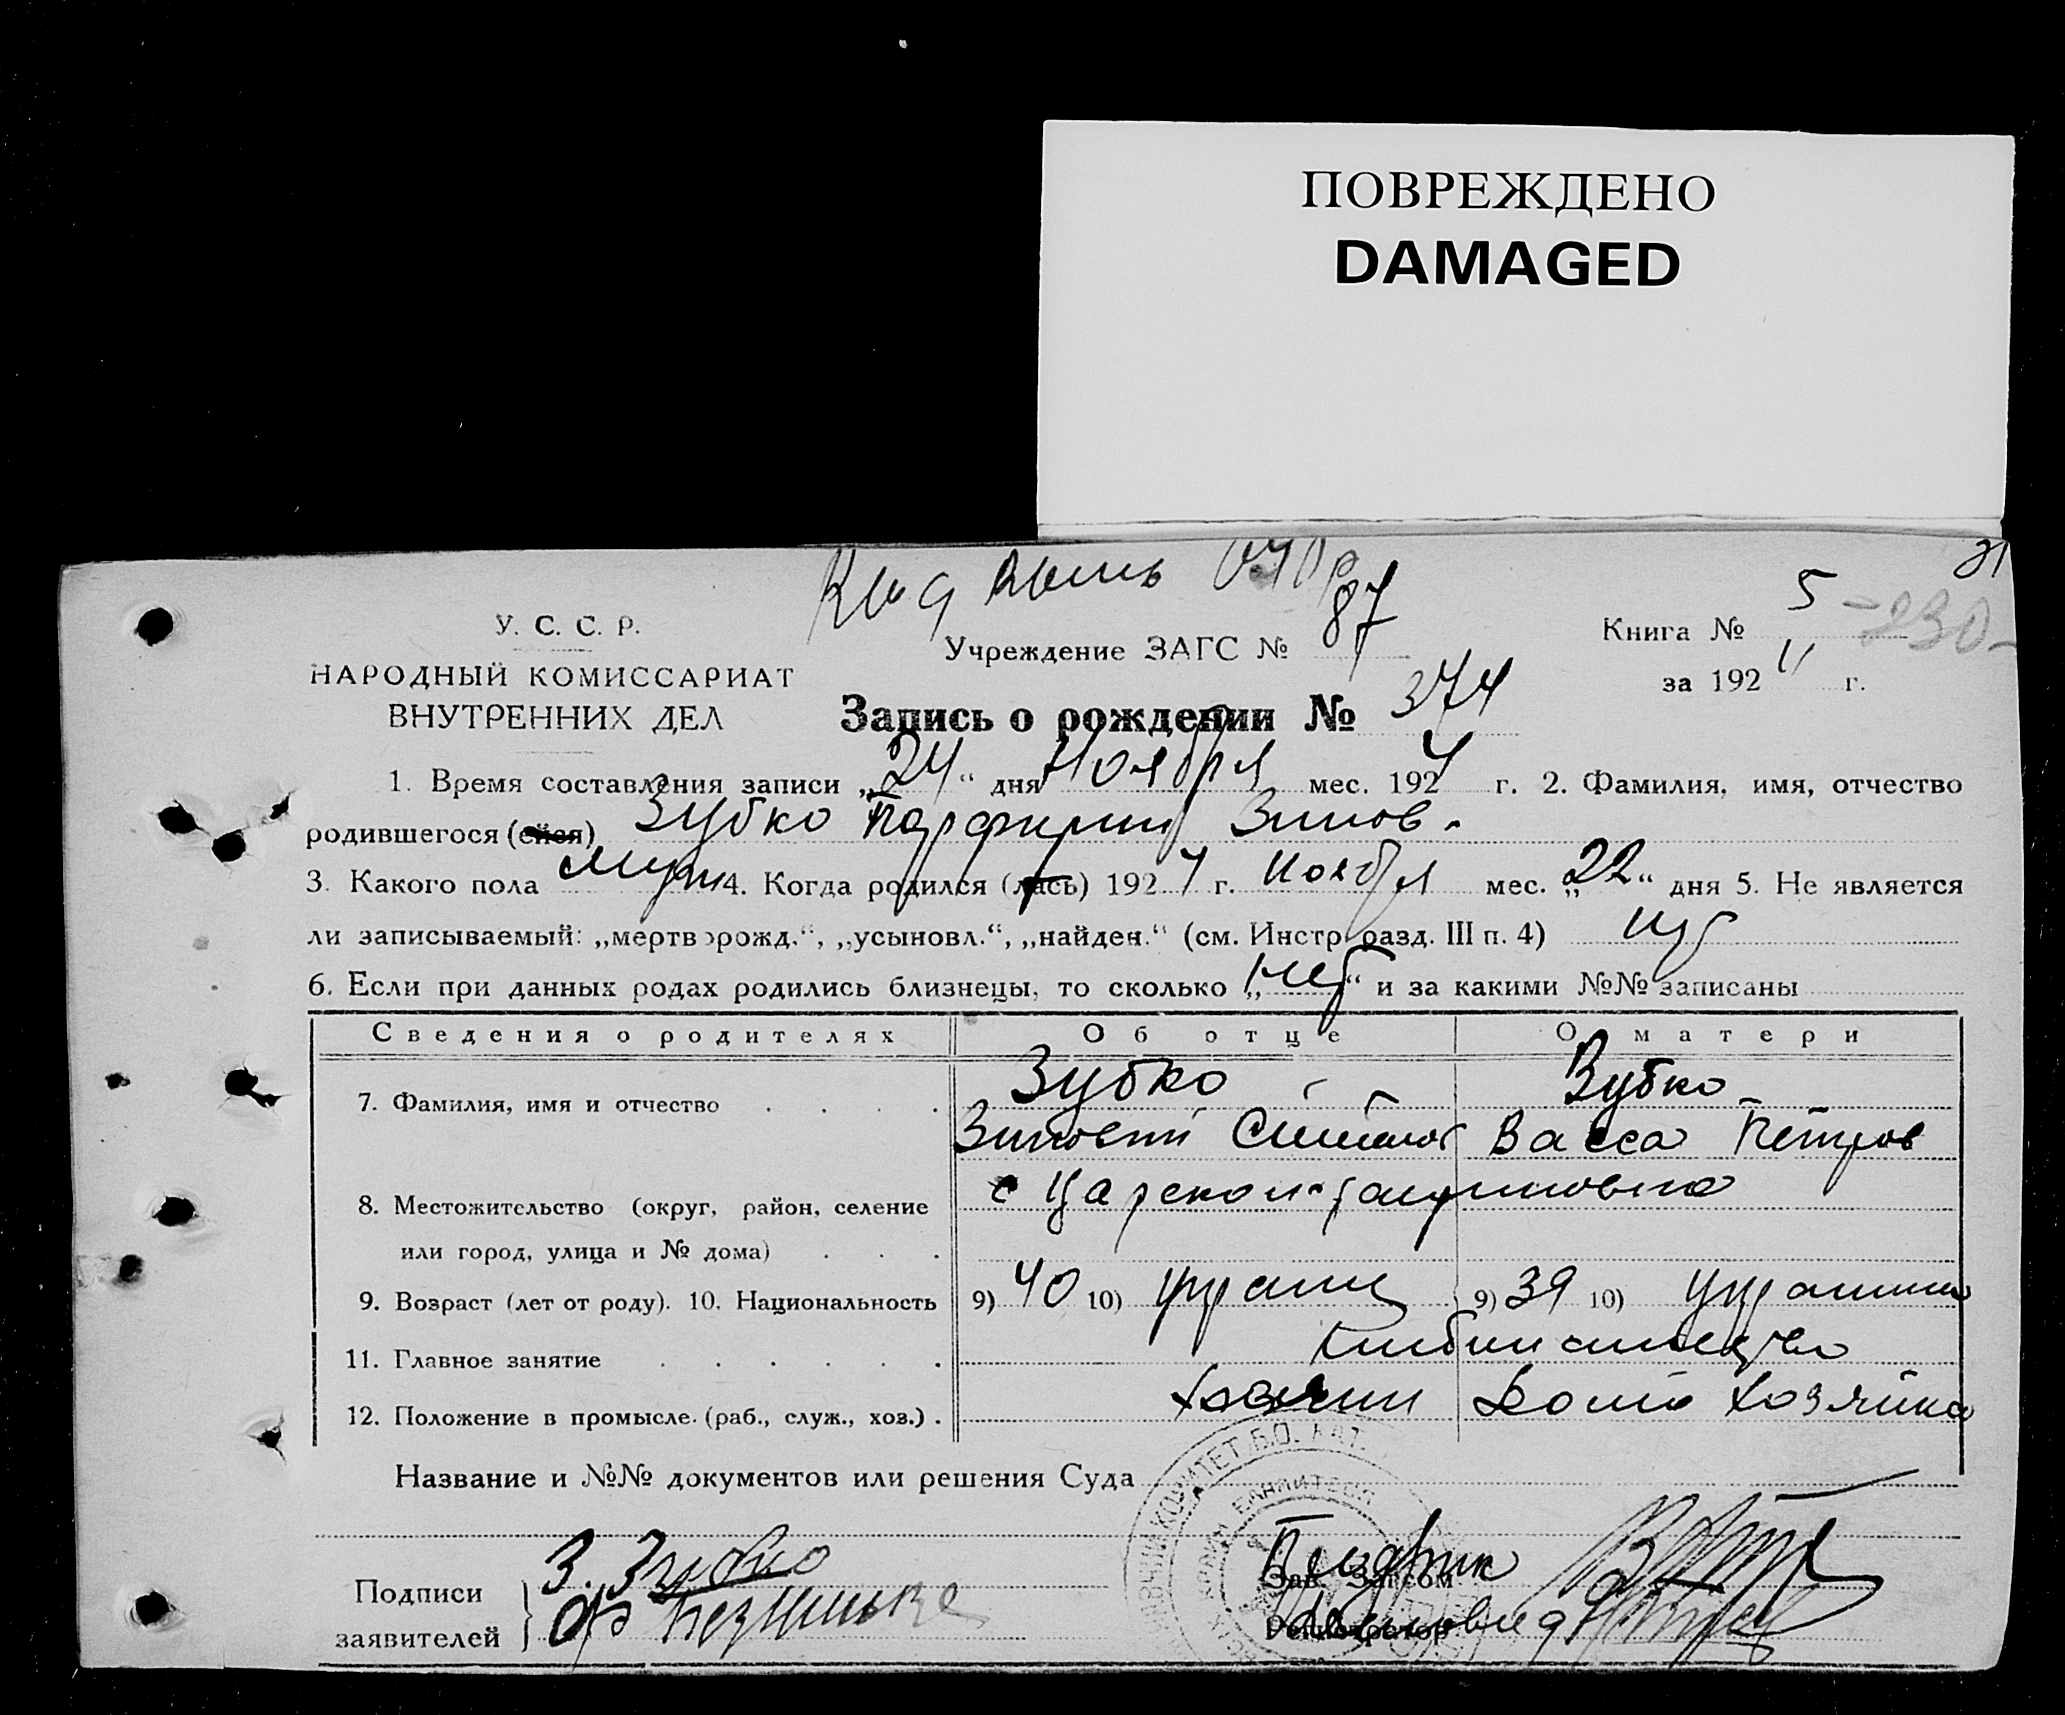 ПОВРЕЖДЕНО
DAMAGED
21
У. С. С. Р.
НАРОДНЫЙ КОМИССАРИАТ
ВНУТРЕННИХ ДЕЛ
Учреждение ЗАГС № 87
Книга № 5 -230-
за 192 г.
Запись о рождении № 374
1. Время составления записи „24“ дня Ноября мес. 1924 г. 2. Фамилия, имя, отчество
родившегося (ейся) Зубко Парфирий Зинов.
3. Какого пола муж 4. Когда родился (лась) 1924 г. ноября мес. „22“ дня 5. Не является
ли записываемый: „мертворожд.“, „усыновл.“, „найден.“ (см. Инстр. разд. III п. 4) нет
6. Если при данных родах родились близнецы, то сколько „нет“ и за какими №№ записаны
Сведения о родителях Об отце О матери
7. Фамилия, имя и отчество Зубко Зубко
Зиновий Васса Петров
8. Местожительство (округ, район, селение с Царекон-
или город, улица и № дома)
9. Возраст (лет от роду). 10. Национальность 9) 40 10) украин 9) 39 10) украинка
11. Главное занятие
12. Положение в промысле (раб., служ., хоз.) хозяин Домо хозяйка
Название и №№ документов или решения Суда
Подписи З. Зубко Зав. Загсом
заявителей Регистратор